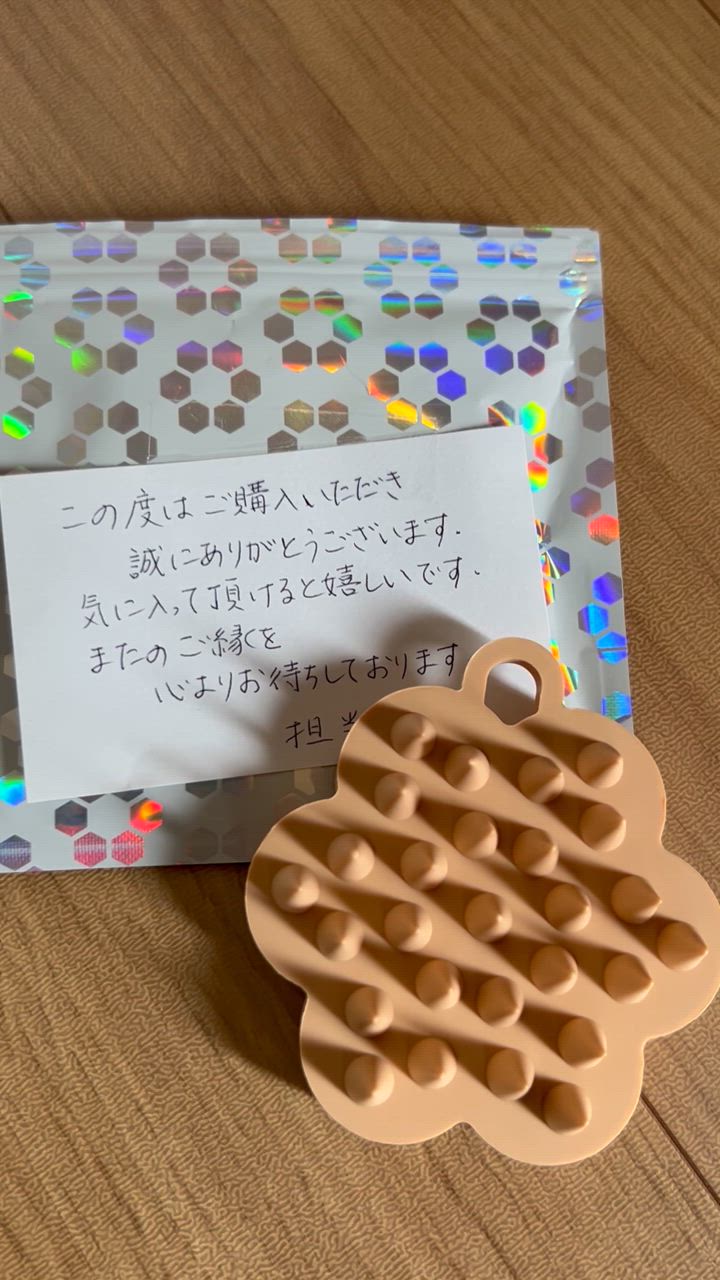 この度はご購入いただき
誠にありがとうございます.
気に入って頂けると嬉しいです.
またのご縁を
心よりお待ちしております
担当